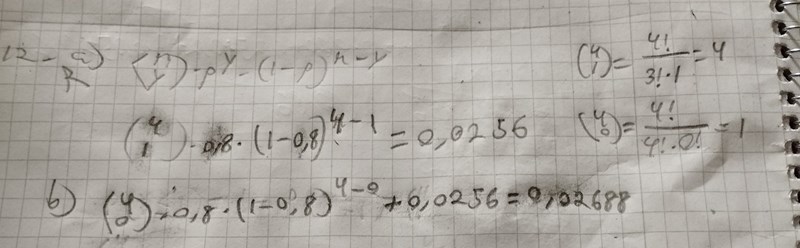 12 - a) (n r) · p^r · (1-p)^n-r
(4 1) = 4!/3!·1 = 4
(4 1) · 0,8 · (1-0,8)^4-1 = 0,0256
(4 0) = 4!/4!·0! = 1
b) (4 0) · 0,8 · (1-0,8)^4-0 + 0,0256 = 0,02688